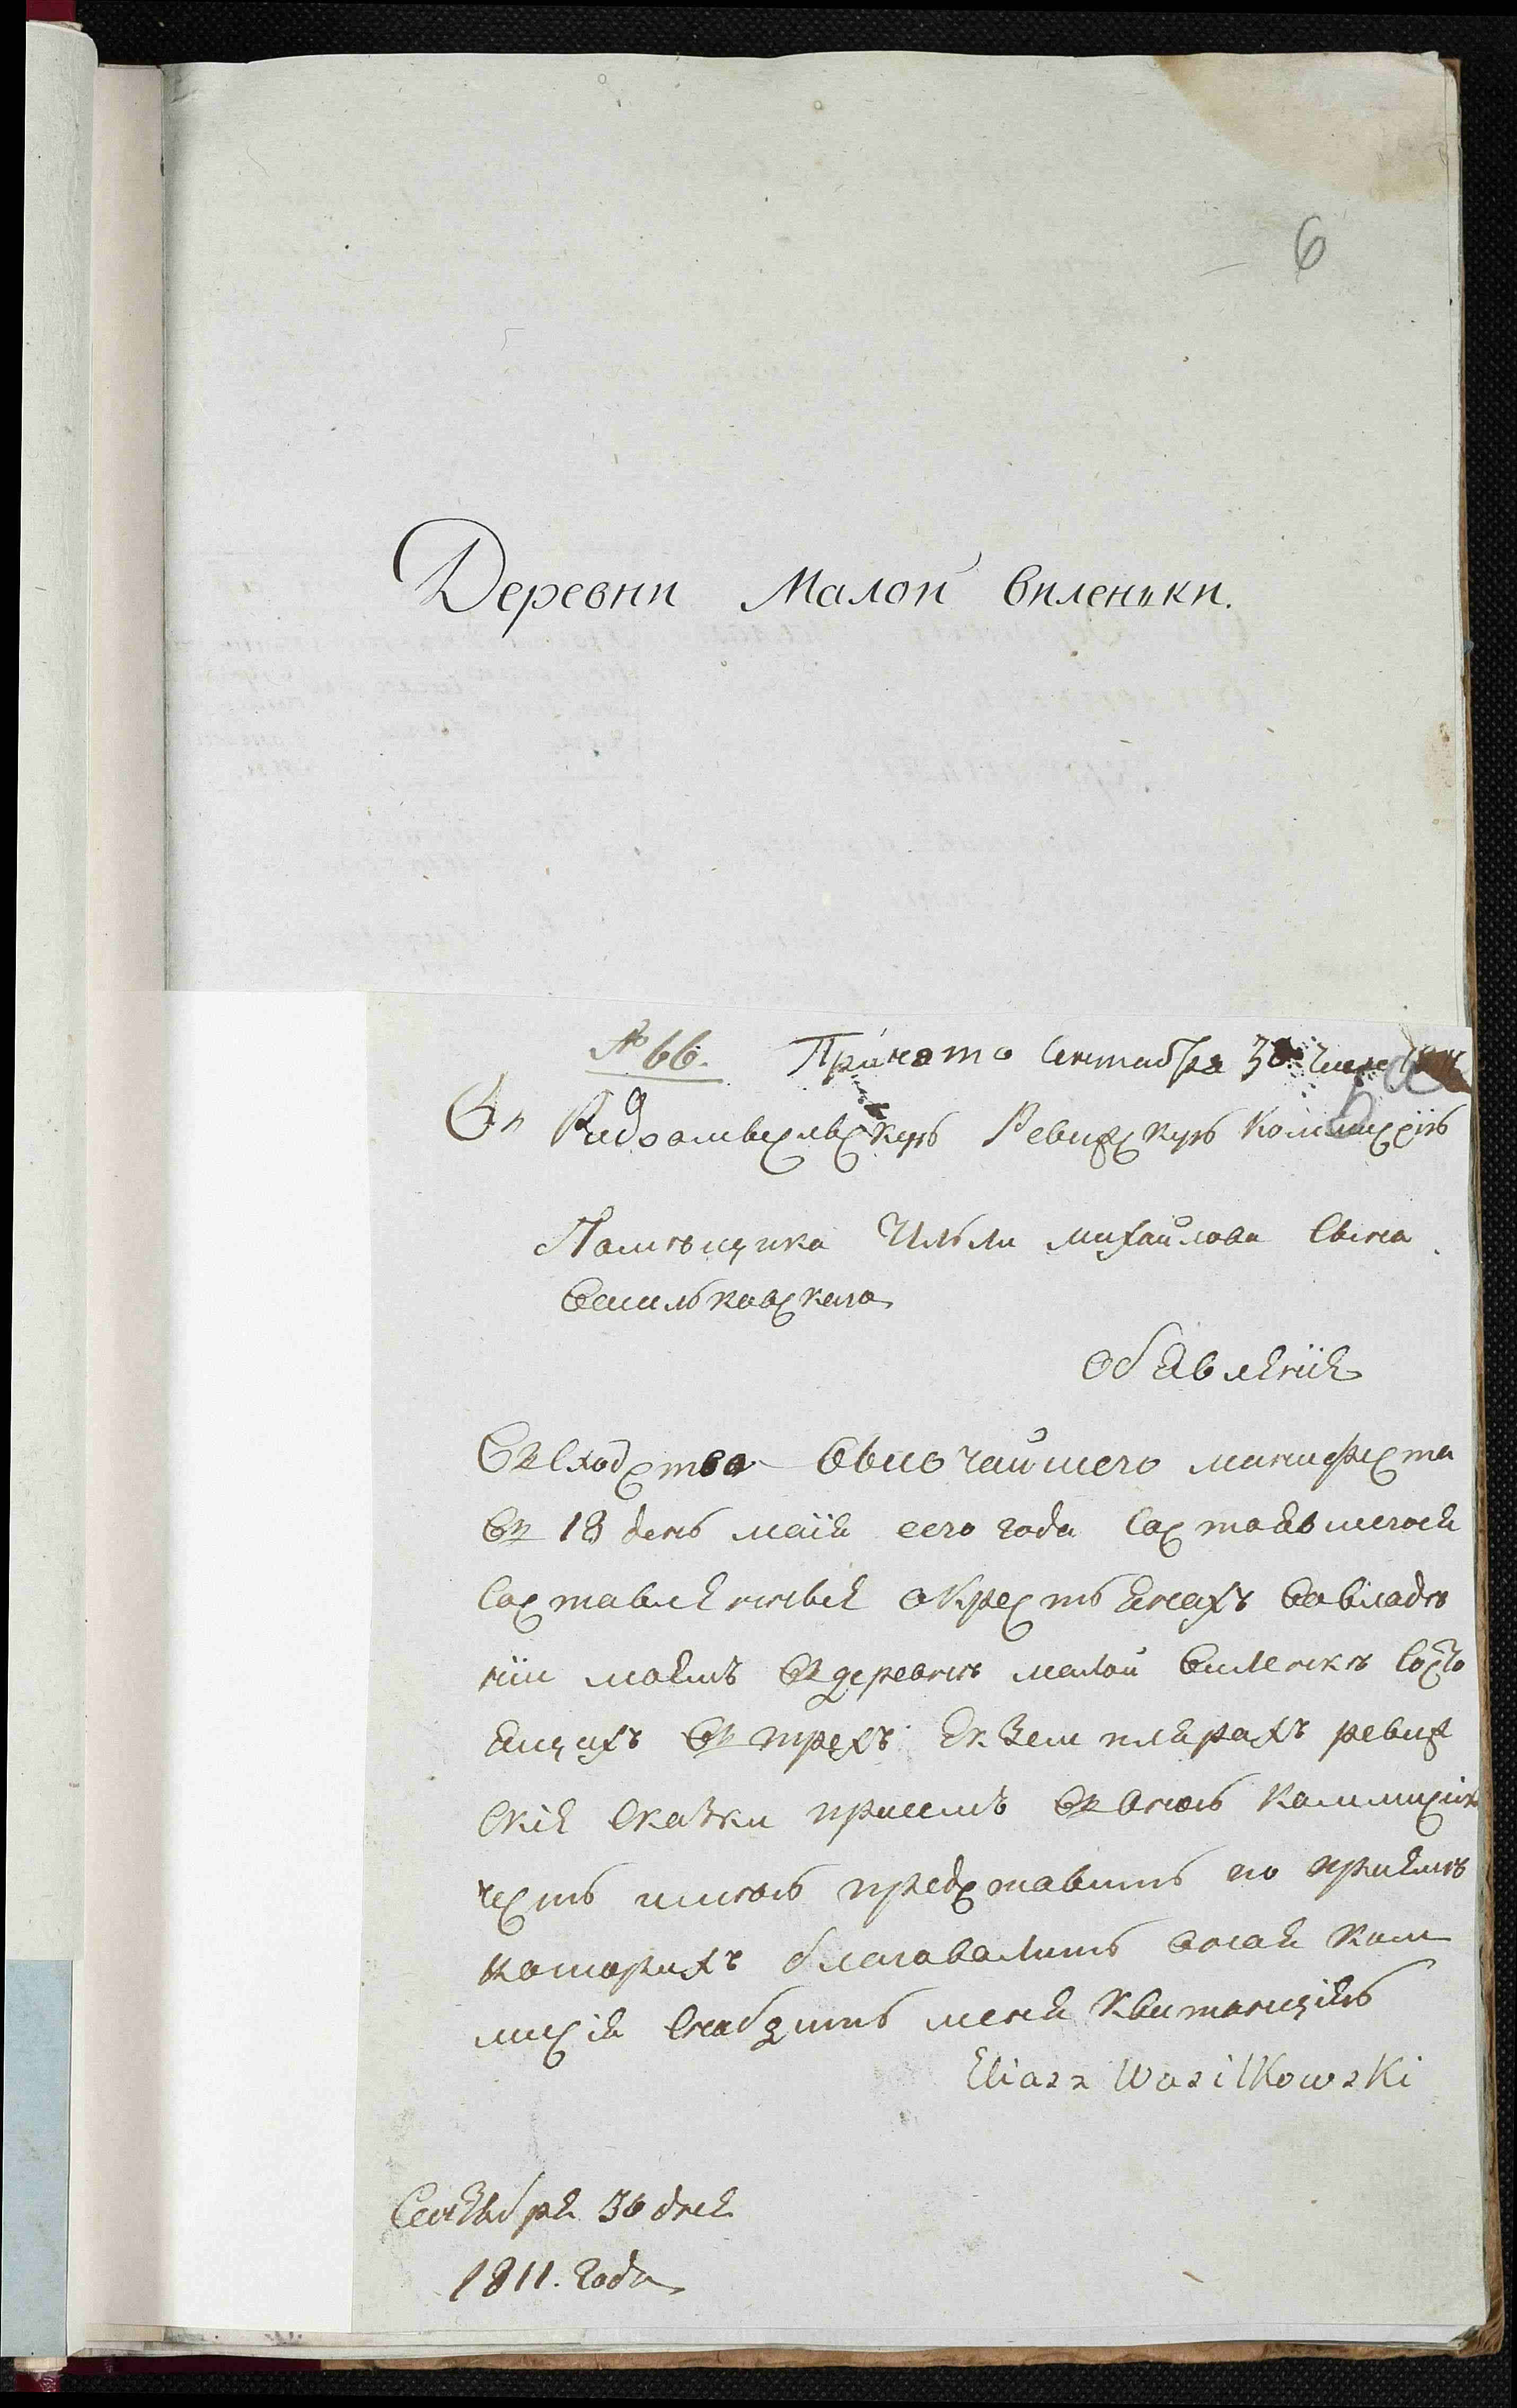 6
Деревни Малой Виленьки.
№ 66. Принято Сентября 30 числа 1811
Въ Радомысльскую Ревизскую Коммиссїю
Помѣщика Ильи Михайлова Сына
Василькавскаго
Объявленїе
Въ Сходство Высочайшего манифеста
въ 18 день маїя сего года Состоявшегося
Составленные о Крестьянахъ во владѣ
нїи моемъ въ деревнѣ малой Виленкѣ Состо
ящихъ въ трехъ Екземплярахъ ревиз
скїе Сказки при семъ въ оную Коммисїю
честь имѣю представить по приемѣ
которихъ благоволитъ оная Ком
мисїя Снабдить меня Квитанцїею
Eliasz Wasilkowski
Сентября 30 дня
1811. Года